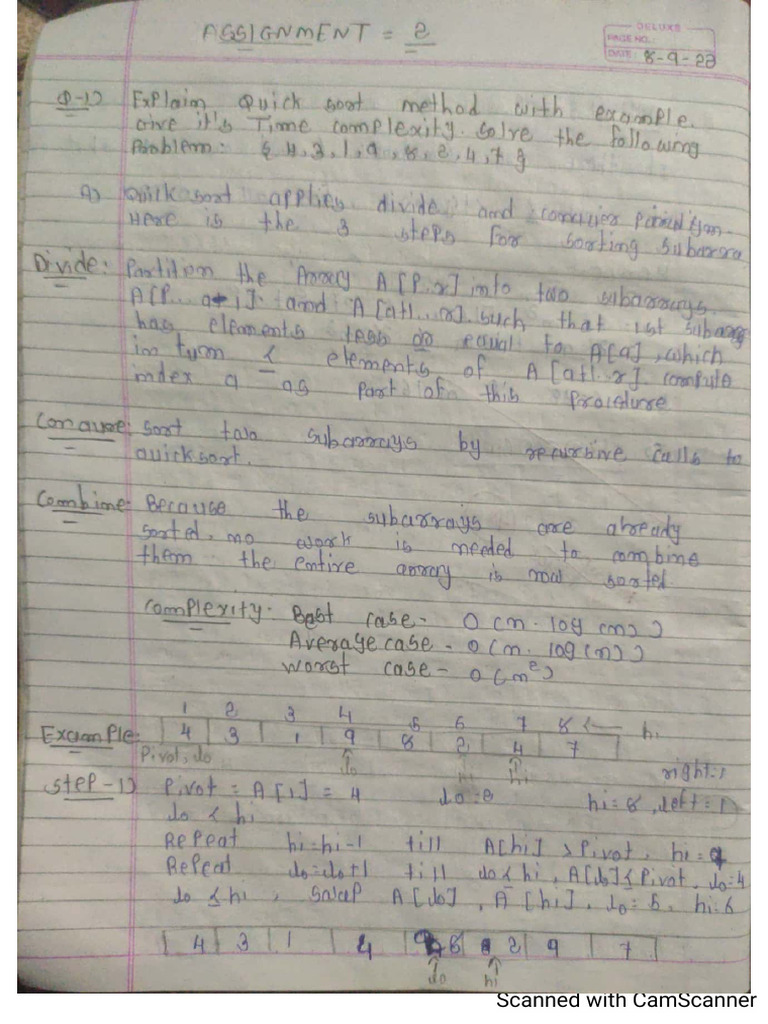 ASSIGNMENT = 2
DELUXE
PAGE NO.:
DATE: 8-9-23
Q-1) Explain Quick sort method with example.
Give it's Time complexity. solve the following
Problem: { 4, 3, 1, 9, 8, 2, 4, 7 }
A) Quick sort applies divide and conquer
Here is the 3 steps for sorting subarra
Divide: Partition the Array A [P..r] into two subarrays.
A[P.. q-1]. and A [q+1.. r]. such that 1st subarray
has elements less or equal to A[q], which
in turn ≤ elements of A [q+1..r]. compute
index q as part of this Procedure
Conquer: sort two subarrays by recursive calls to
quicksort.
Combine: Because the subarrays are already
sorted. no work is needed to combine
them the entire array is now sorted
Complexity: Best case - O(n. log(n))
Average case - O(n. log(n))
Worst case - O(n²)
1 2 3 4 5 6 7 8 ← hi
Example: 4 3 1 9 8 2 4 7
Pivot, lo lo hi
right:1
Step-1) Pivot = A[1] = 4 hi = 8, left = 1
lo < hi
Repeat hi=hi-1 till A[hi] > Pivot, hi =
Repeat lo=lo+1 till lo ≤ hi, A[lo] ≤ Pivot, lo=4
lo ≤ hi, swap A [lo], A [hi]. lo=5, hi=6
4 3 1 4 8 2 9 7
lo hi
Scanned with CamScanner